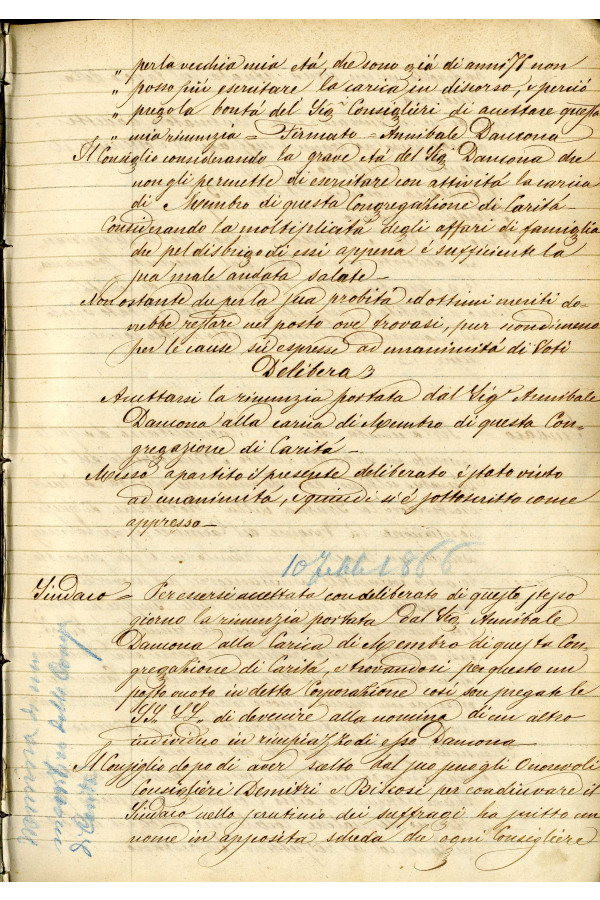 „ per la vecchia mia età, che sono già di anni 76 non
„ posso più esercitare la carica in discorso, e perciò
„ prego la bontà dei Sigri Consiglieri di accettare questa
„ mia rinunzia = Firmato = Annibale Damona
Il Consiglio considerando la grave età del Sigr Damona che
non gli permette di esercitare con attività la carica
di Membro di questa Congregazione di Carità –
Considerando la moltiplicità degli affari di famiglia
che pel disbrigo di essi appena è sufficiente la
sua male andata salute –
Non ostante che per la sua probità ed ottimi meriti do-
vrebbe restare nel posto ove trovasi, pur nondimeno
per le cause su espresse ad unanimità di Voti
Delibera
Accettarsi la rinunzia portata dal Sigr Annibale
Damona alla carica di Membro di questa Con-
gregazione di Carità –
Messo a partito il presente deliberato è stato vinto
ad unanimità, e quindi si è sottoscritto come
appresso –
10 Febb 1866
Sindaco = Per essersi accettata con deliberato di questo stesso
giorno la rinunzia portata dal Sigr Annibale
Damona alla Carica di Membro di questa Con-
gregazione di Carità, e trovandosi per questo un
posto vuoto in detta Corporazione così son pregate le
SS. LL. di devenire alla nomina di un altro
individuo in rimpiazzo di esso Damona
Il Consiglio dopo di aver scelto dal suo seno gli Onorevoli
Consiglieri Demitri e Biscosi per coadiuvare il
Sindaco nello scrutinio dei suffragi ha scritto un
nome in apposita scheda che ogni Consigliere
Nomina di un
membro della Cong.
di Carità